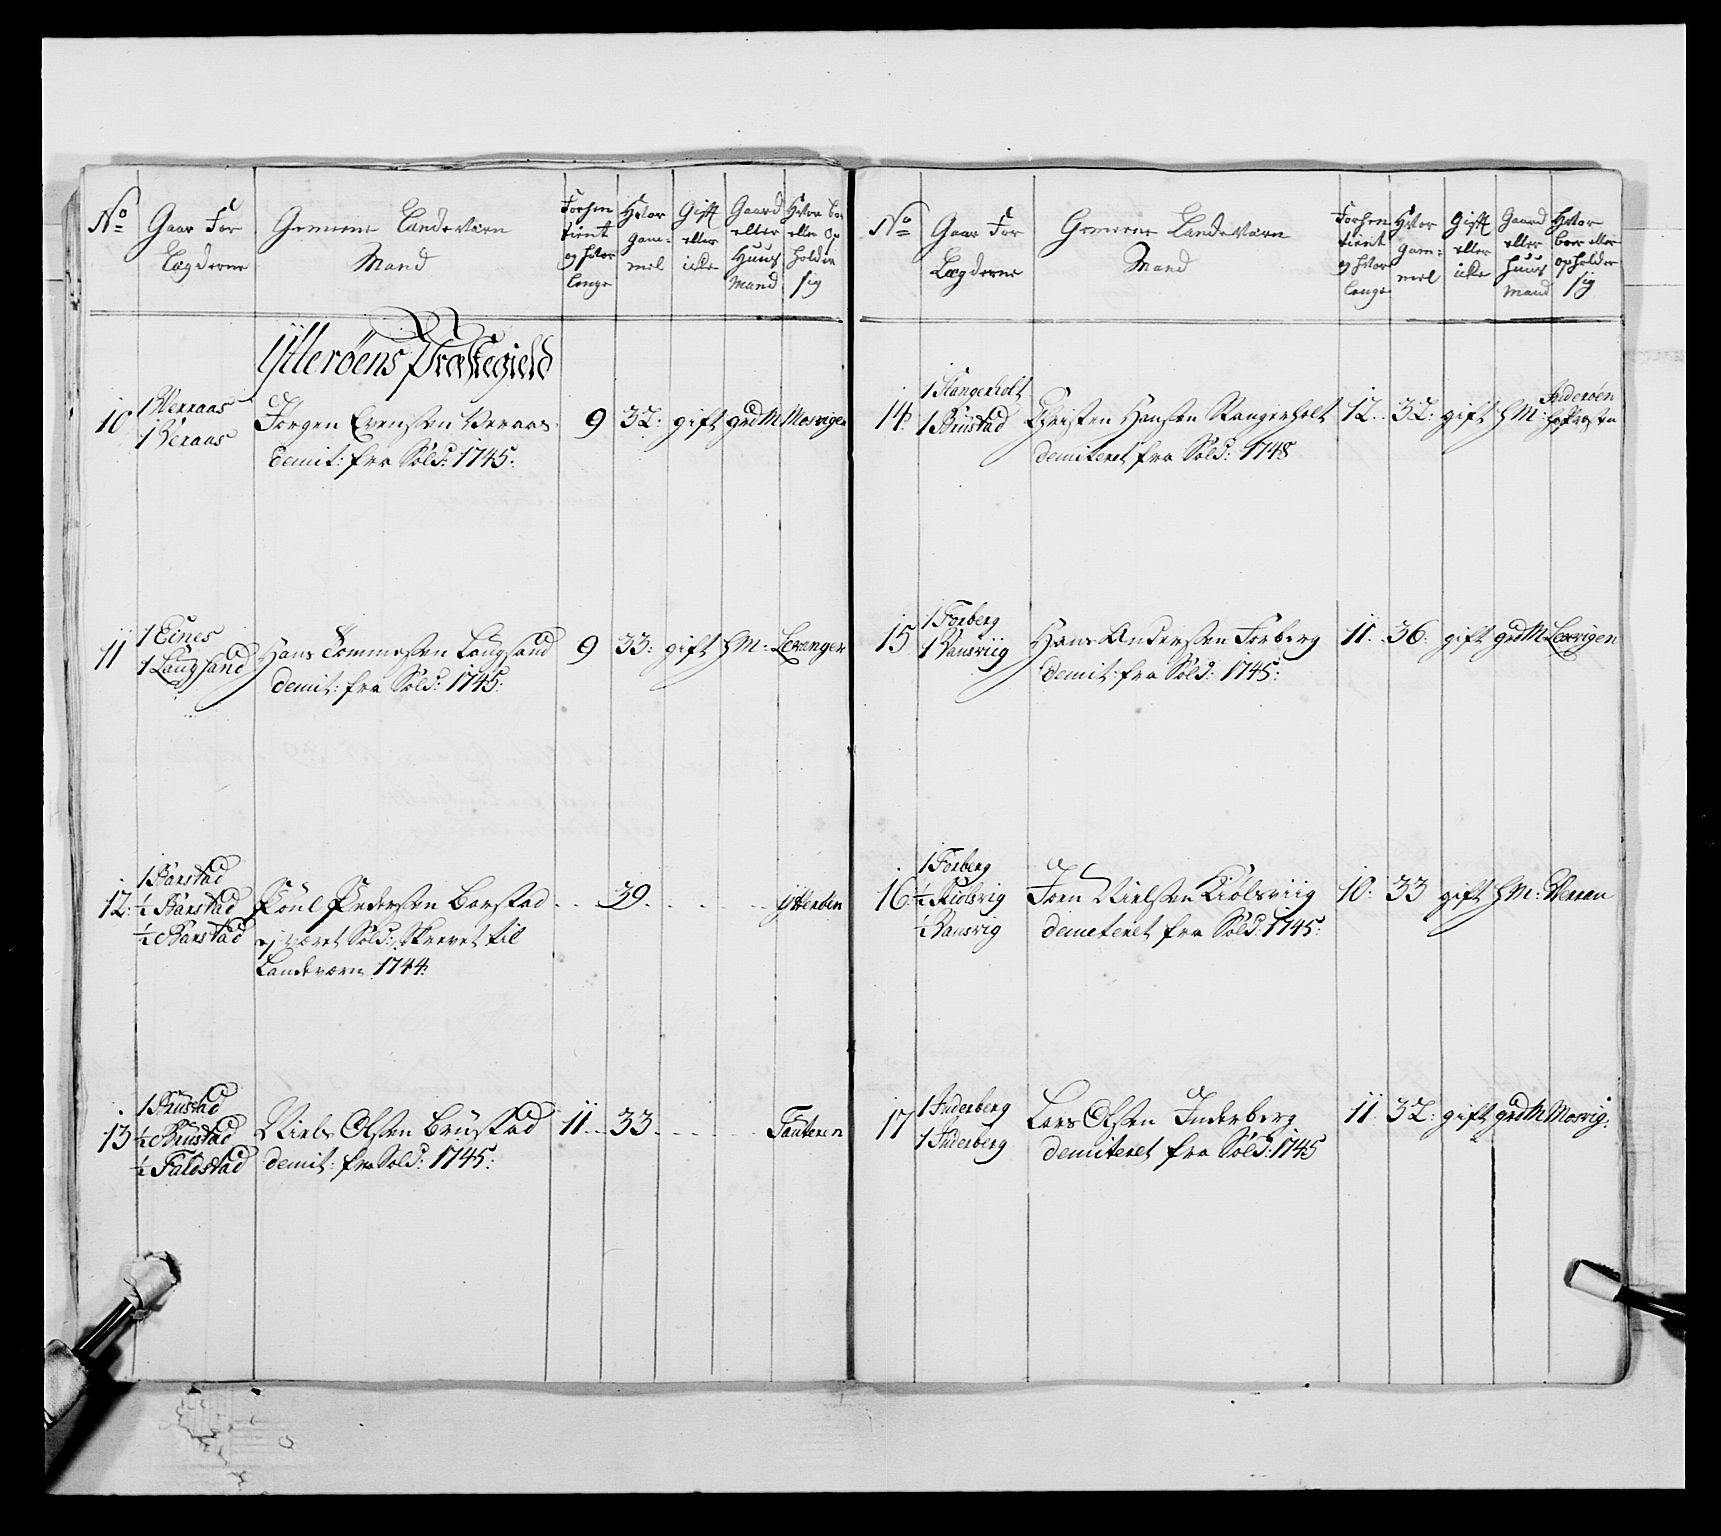 No
Gaar For
Lægderne
Gemene Landeværn
Mand
Forhen
tient
og hvor
lenge
Hvor
gam-
mel
Gift
eller
icke
Gaard
eller
Huus
Mand
Hvor boe
eller op
holder
sig
Ÿtterøens Præstegield
10
1 Verraas
1 Veraas
Jørgen Evensen Veraas
demit: fra Sold: 1745:
9 32: gift grdM Mosvigen
11
1 Eines
1 Laugsand
Hans Tommesen Laugsand
demit: fra Sold: 1745:
9 33: gift HM: Levanger
12:
1 Barstad
½ Barstad
½ Barstad
Poul Pedersen Barstad
ej været Sold: Skrevet til
Landeværn 1744:
39
ÿtterøen
13
1 Brustad
½ Brustad
½ Faldstad
Niels Olsen Brustad
demit: fra Sold: 1745:
11 33
Tauteren
No
Gaar For
Lægderne
Gemene Landeværn
Mand
Forhen
tient
og hvor
lenge
Hvor
gam-
mel
Gift
eller
icke
Gaard
eller
huus
Mand
Hvor
boer eller
opholder
sig
14
1 Stangerholt
1 Brustad
Christen Hansen Stangerholt
demiteret fra Sold: 1748
12 32: gift HM:
15
1 Forberg
1 Vansviig
Hans Andersen Forberg
demit: fra Sold: 1745:
11 36: gift grdM Lexvigen
16
1 Forberg
½ Kiolsvig
½ Vansvig
Joen Nielsen Kiølsviig
demeteret fra Sold: 1745:
10: 33 gift HM: Verran
17
1 Inderberg
1 Inderberg
Lars Olsen Inderberg
demiteret fra Sold: 1745
11 32: gift grdM Mosvig: